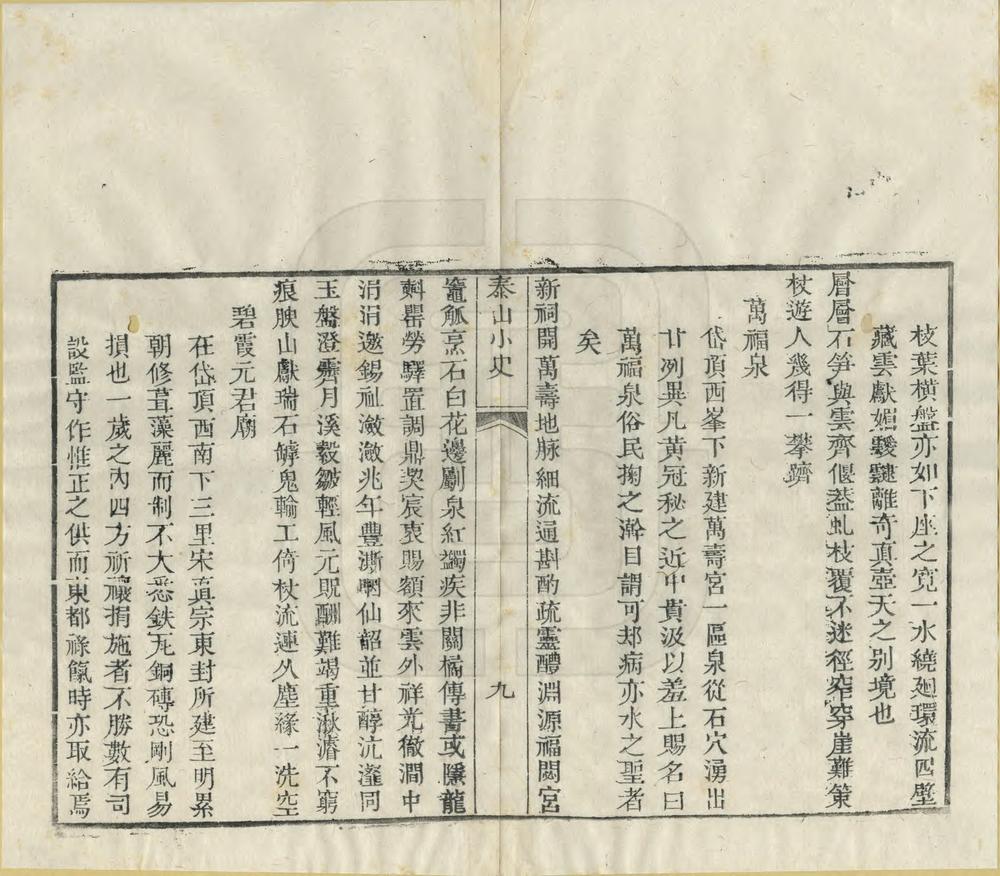 枝葉橫盤亦如下座之寬一水繞廻環流四壁
藏雲獻媚靉靆離奇眞壺天之別境也
層層石笋與雲齊偃葢虬枝覆不迷徑窄穿崖難策
杖遊人幾得一攀躋
萬福泉
岱頂西峯下新建萬壽宮一區泉從石穴湧出
甘冽異凡黃冠秘之近中貴汲以羞上賜名曰
萬福泉俗民掬之澣目謂可却病亦水之聖者
矣
新祠開萬壽地脉細流通斟酌疏靈醴淵源福閟宮
泰山小史
九
竈觚烹石白花邊劚泉紅蠲疾非關橘傳書或隱龍
㪺罍勞驛置調鼎契宸衷賜額來雲外祥光徹澗中
涓涓邀錫祉瀲瀲兆年豐澌㘓仙韶並甘醇沆瀣同
玉盤澄霽月溪縠皺輕風元貺酬難竭重湫濬不窮
痕腴山獻瑞石罅鬼輸工倚杖流連久塵緣一洗空
碧霞元君廟
在岱頂西南下三里宋眞宗東封所建至明累
朝修葺藻麗而制不大悉鉄瓦銅磚恐剛風易
損也一歲之內四方祈禳捐施者不勝數有司
設監守作惟正之供而東都祿餼時亦取給焉